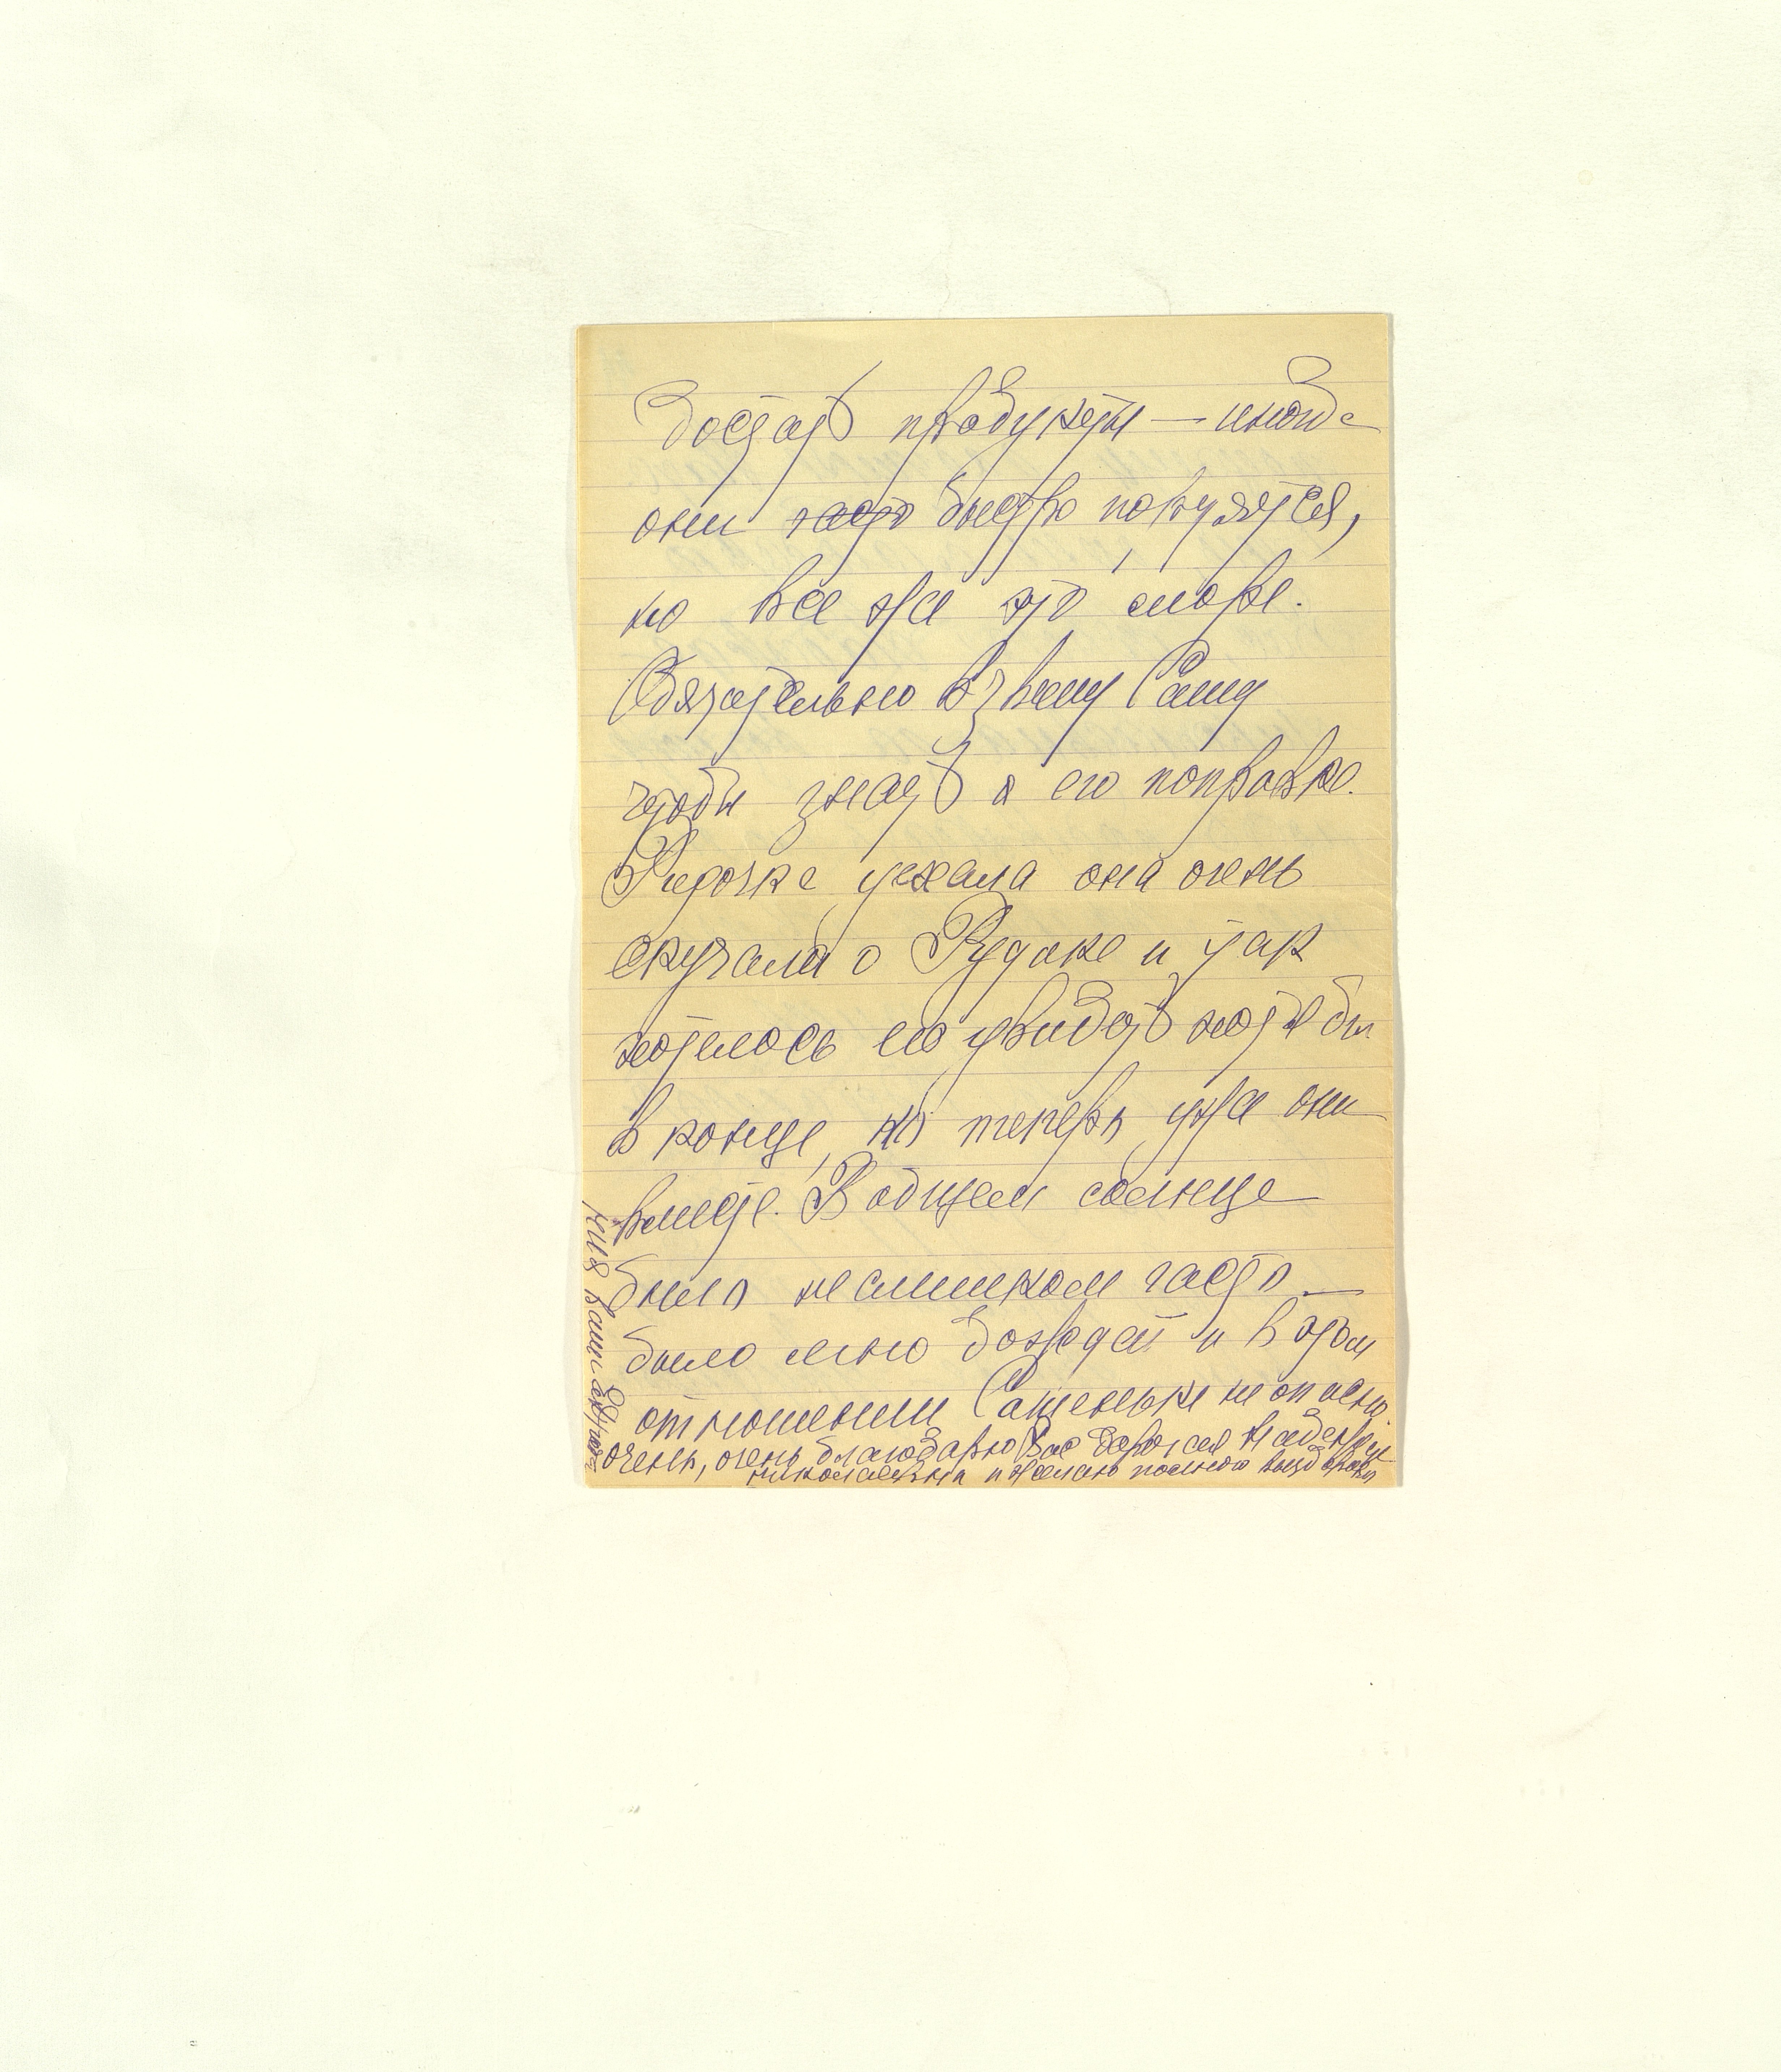 достать продукты — иногда
они часто быстро покупятся,
но все же это море.
Обязательно взвешу Сашу
чтобы знать о его поправке.
Лидочка уехала она очень
скучала о Рудике и так
хотелось его увидать хотя бы
в конце, но теперь уже они
вместе. В общем солнце
было не слишком часто —
было много дождей и в этом
отношении Сашеньке не опасно.
очень, очень благодарю Вас дорогая Надежда
Николаевна и желаю полного выздоровл
ния Ваши